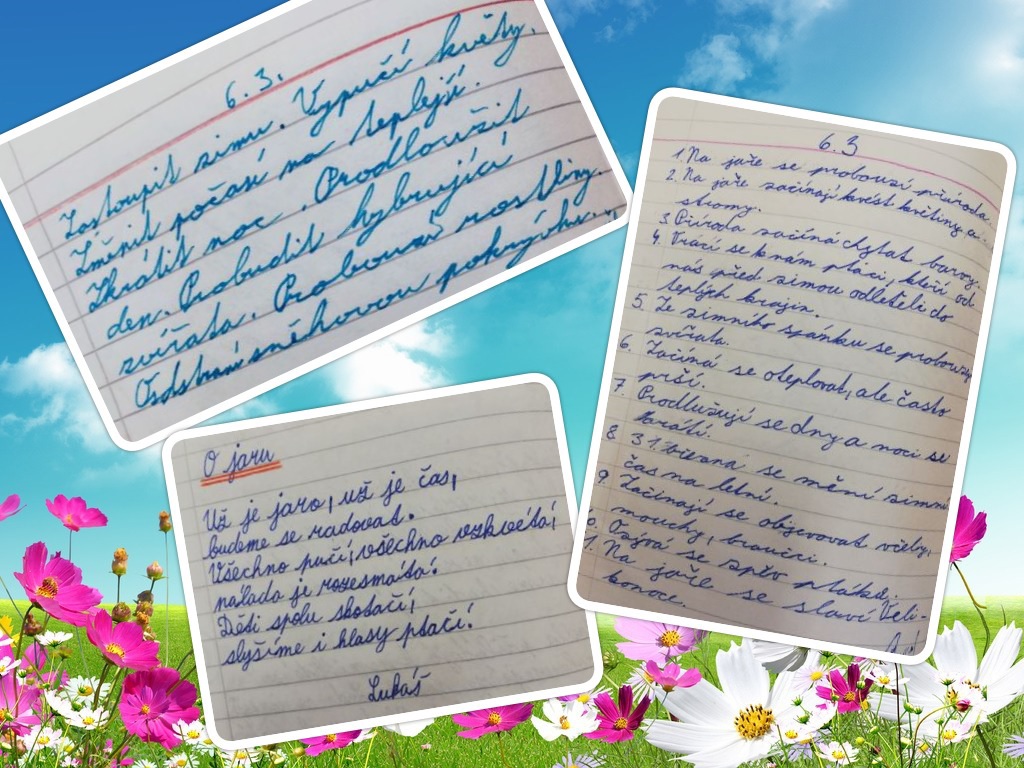 6. 3.
Zastoupit zimu. Vypučí květy.
Změnit počasí na teplejší.
Zkrátit noc. Prodloužit
den. Probudit hybrující
zvířata. Probouzí rostliny.
Odstraní sněhovou pokrývku.
O jaru
Už je jaro, už je čas,
budeme se radovat.
Všechno pučí, všechno vzkvétá,
nálada je rozesmátá.
Děti spolu skotačí,
slyšíme i hlasy ptačí.
Lukáš
6.3
1. Na jaře se probouzí příroda.
2. Na jaře začínají kvést květiny a
stromy.
3. Příroda začíná chytat barvy.
4. Vrací se k nám ptáci, kteří od
nás před zimou odletěli do
teplých krajin.
5. Ze zimního spánku se probouzí
zvířata.
6. Začíná se oteplovat, ale často
prší.
7. Prodlužují se dny a noci se
krátí.
8. 31 března se mění zimní
čas na letní.
9. Začínají se objevovat včely,
mouchy, bravíčci.
0. Ozývá se zpěv ptáků.
1. Na jaře se slaví Veli-
konoce.